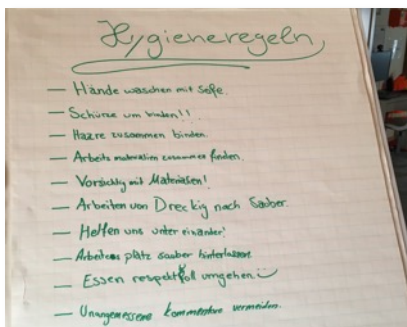 Hygieneregeln
— Hände waschen mit Seife.
— Schürze um binden!!
— Haare zusammen binden.
— Arbeits materialien zusammen finden.
— Vorsichtig mit Materialien!
— Arbeiten von Dreckig nach Sauber.
— Helfen uns unter einander!
— Arbeits platz sauber hinterlassen.
— Essen respektvoll umgehen
— Unangemessene Kommentare vermeiden.